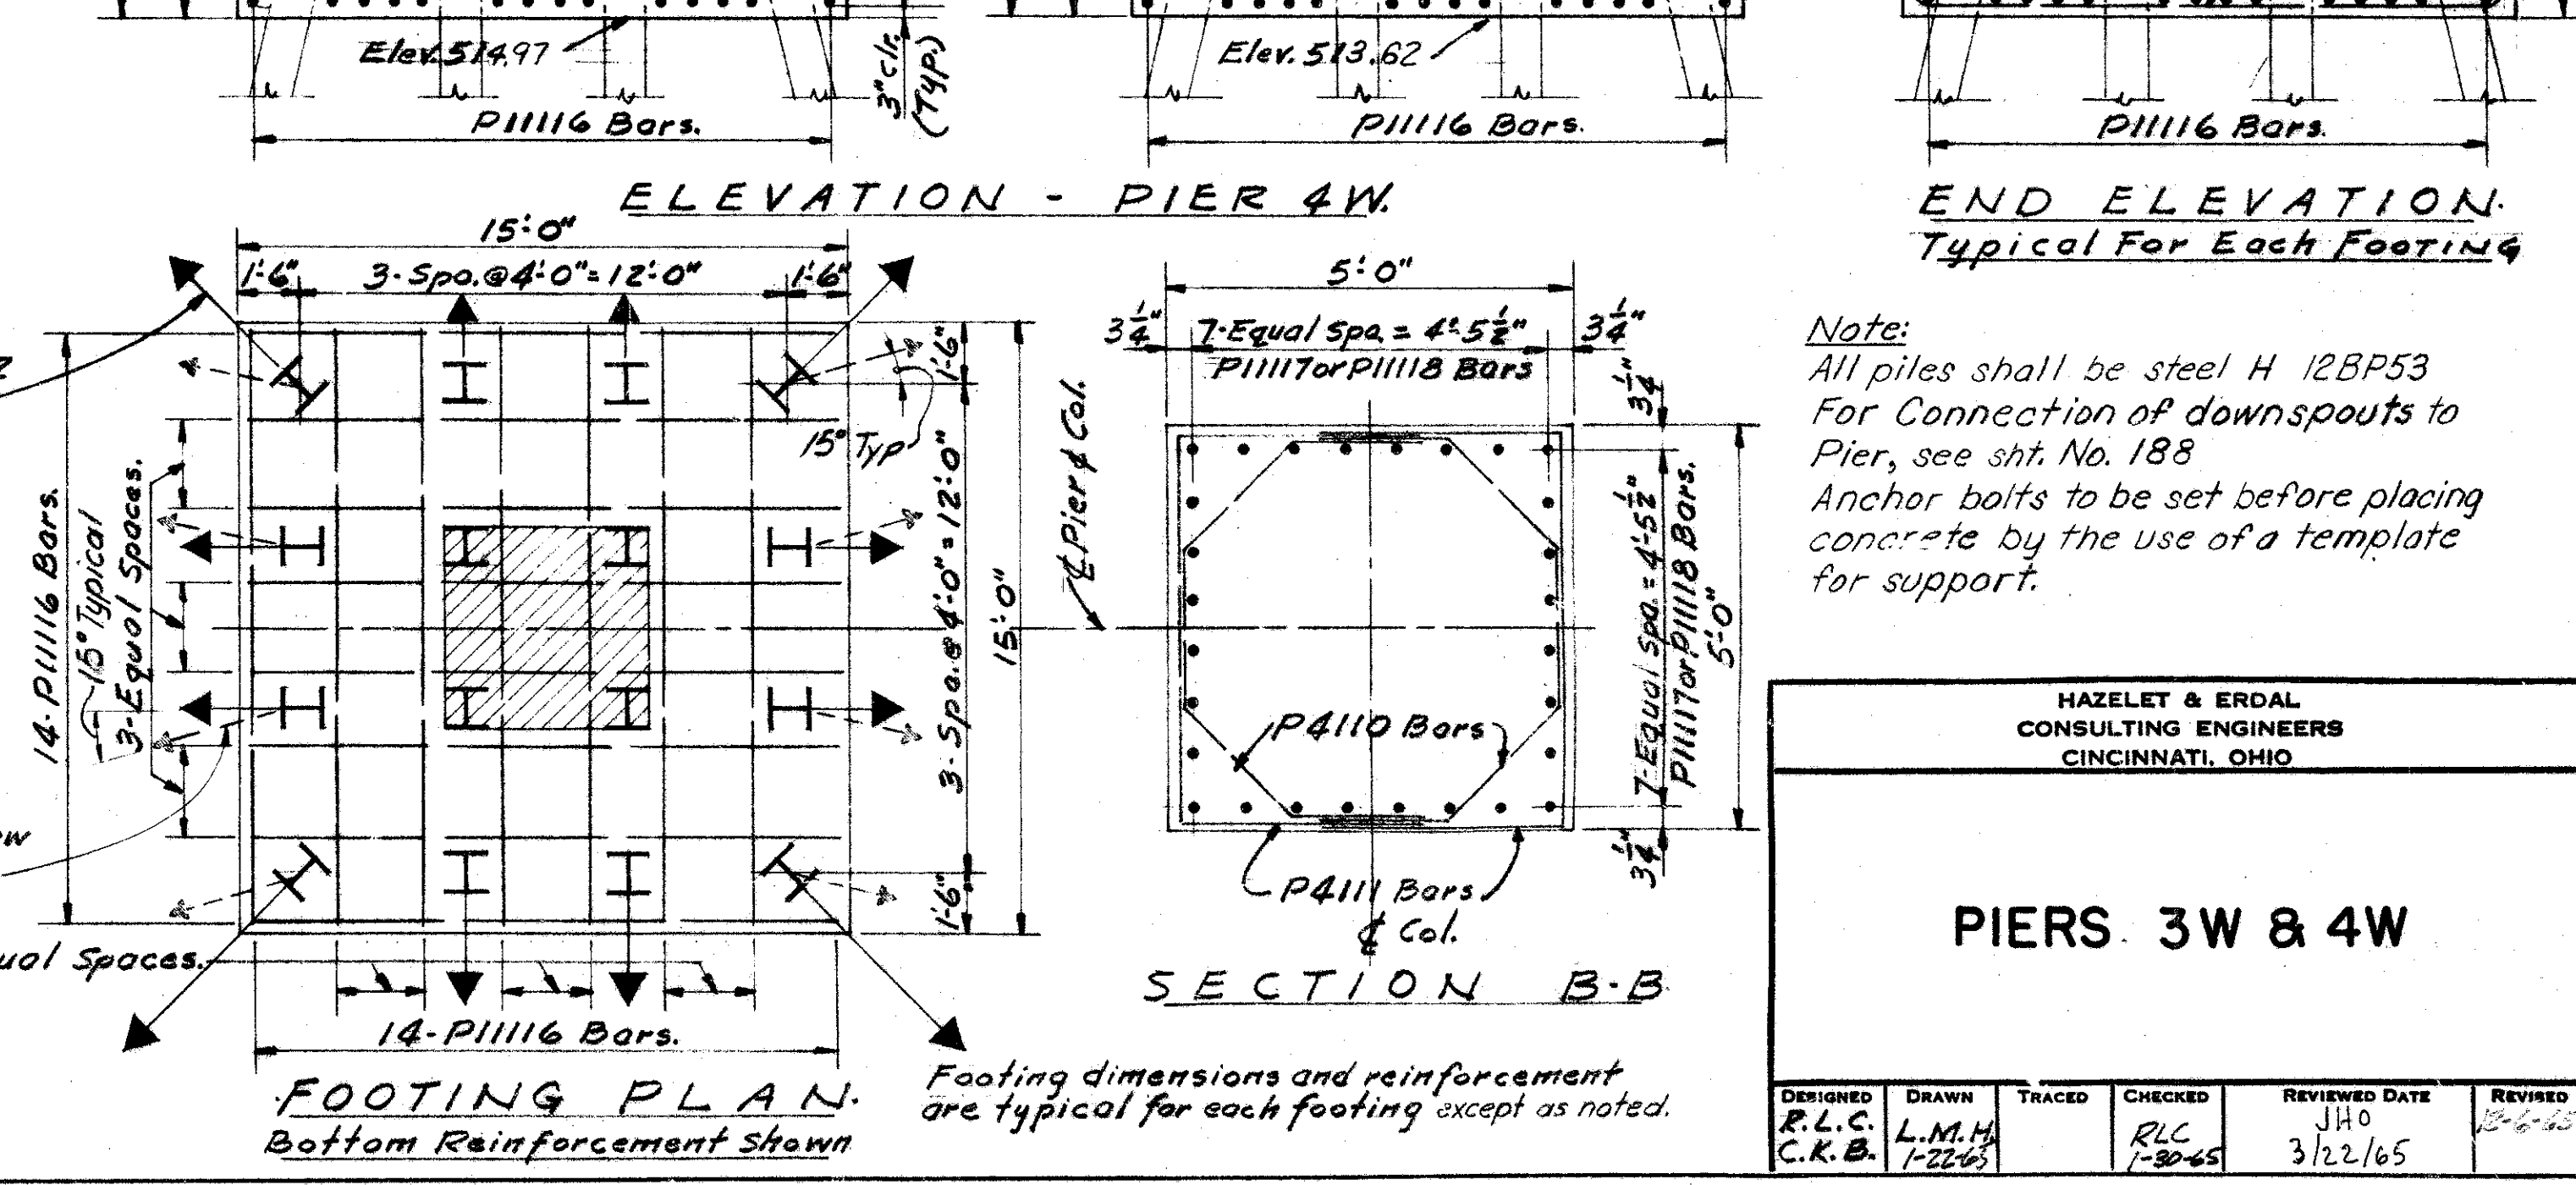 Elev. 514.97
3" clr.
(Typ.)
P11116 Bars.
Elev. 513.62
P11116 Bars.
P11116 Bars.
ELEVATION - PIER 4W.
END ELEVATION.
Typical For Each FOOTING
15'-0"
1'-6"
3-Spa.@4'-0"=12'-0"
1'-6"
1'-6"
15° Typ
3-Spa.@4'-0"=12'-0"
15'-0"
1'-6"
14-P11116 Bars.
15° Typical
3-Equal Spaces.
Spaces.
14-P11116 Bars.
FOOTING PLAN.
Bottom Reinforcement Shown
℄ Pier & Col.
5'-0"
3 1/4"
7-Equal Spa. = 4'-5 1/2"
3 1/4"
P11117 or P11118 Bars
3 1/4"
7-Equal Spa. = 4'-5 1/2"
P11117 or P11118 Bars.
5'-0"
3 1/4"
P4110 Bars
P4111 Bars
℄ Col.
SECTION B-B
Footing dimensions and reinforcement
are typical for each footing except as noted.
Note:
All piles shall be steel H 12BP53
For Connection of downspouts to
Pier, see sht. No. 188
Anchor bolts to be set before placing
concrete by the use of a template
for support.
HAZELET & ERDAL
CONSULTING ENGINEERS
CINCINNATI, OHIO
PIERS 3W & 4W
DESIGNED
R.L.C.
C.K.B.
DRAWN
L.M.H.
1-22-65
TRACED
CHECKED
RLC
1-30-65
REVIEWED DATE
JHO
3/22/65
REVISED